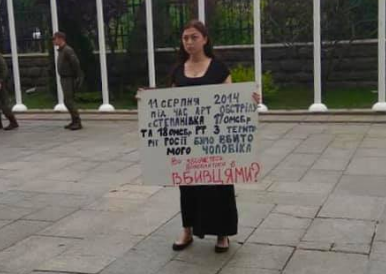 11 СЕРПНЯ 2014
ПІД ЧАС АРТ ОБСТРІЛУ
с СТЕПАНІВКА 17 омсбр
ТА 18 омсбр РТ З ТЕРИТО
РІЇ РОСІЇ БУЛО ВБИТО
МОГО ЧОЛОВІКА
ВИ
З
ВБИВЦЯМИ?